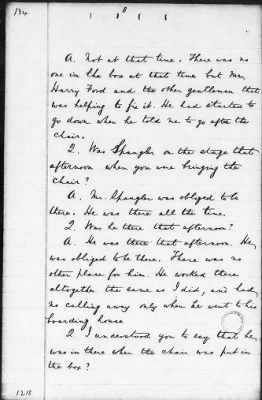 134
8
A. Not at that time. There was no
one in the box at that time but Mr.
Harry Ford and the other gentleman that
was helping to fix it. He had started to
go down when he told me to go after the
chair.
Q. Was Spangler on the stage that
afternoon when you were bringing the
chair?
A. Mr. Spangler was obliged to be
there. He was there all the time.
Q. Was he there that afternoon?
A. He was there that afternoon. He
was obliged to be there. There was no
other place for him. He worked there
altogether the same as I did, and had
no calling away only when he went to his
boarding house
Q. I understood you to say that he
was in there when the chair was put in
the box?
1218